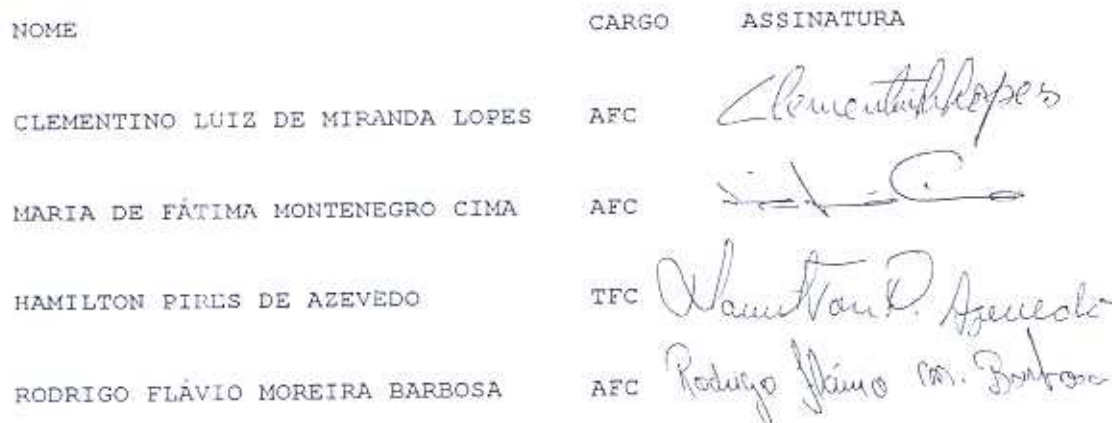 NOME CARGO ASSINATURA
CLEMENTINO LUIZ DE MIRANDA LOPES AFC Clementino Lopes
MARIA DE FÁTIMA MONTENEGRO CIMA AFC
HAMILTON PIRES DE AZEVEDO TFC Hamilton P. Azevedo
RODRIGO FLÁVIO MOREIRA BARBOSA AFC Rodrigo Flávio M. Barbosa